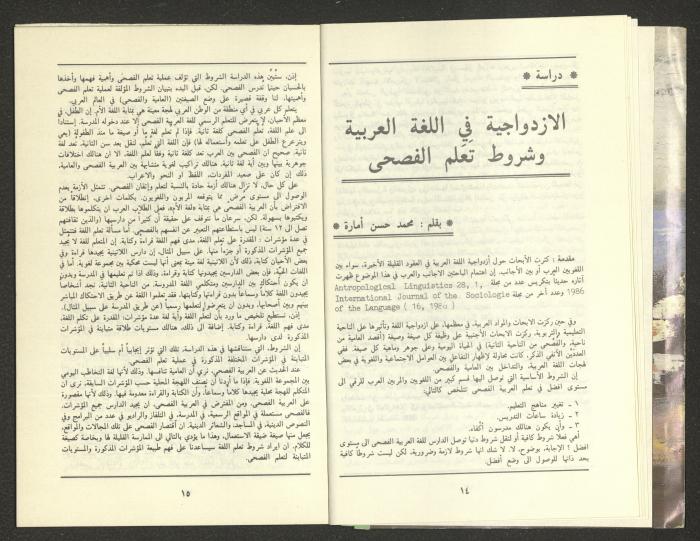 * دراسة *
الازدواجية في اللغة العربية
وشروط تعلم الفصحى
* بقلم : محمد حسن أمارة *
مقدمة : كثرت الأبحاث حول أزدواجية اللغة العربية في العقود القليلة الأخيرة، سواء بين
اللغويين العرب أو بين الأجانب. إن اهتمام الباحثين الاجانب والعرب في هذا الموضوع ظهرت
آثاره حديثا بتكريس عدد من مجلة Antropological Linguistics 28, 1,
1986 وعدد آخر من مجلة International Journal of the Sociologie
of the Language ( 16, 1986 )
وفي حين ركزت الابحاث والمواد العربية، في معظمها، على ازدواجية اللغة وتأثيرها على الناحية
التعليمية والتربوية، ركزت الابحاث الأجنبية على وظيفة كل صيغة وصيغة (العامية من
ناحية، والفصحى من الناحية الثانية) في الحياة اليومية وعلى جوهر وماهية كل صيغة. ففي
العددين الآنفي الذكر، كانت محاولة لإظهار التفاعل بين العوامل الاجتماعية واللغوية في بعض
لهجات اللغة العربية، والتداخل بين العامية والفصحى.
إن الشروط الأساسية التي توصل اليها قسم كبير من اللغويين والمربين العرب للرقي الى
مستوى أفضل في تعلم العربية الفصحى تتلخص كالتالي:
١ - تغيير مناهج التعليم.
٢ - زيادة ساعات التدريس.
٣ - وأن يكون هنالك مدرسون أكفاء.
أهي فعلا شروط كافية أو لنقل شروط دنيا توصل الدارس للغة العربية الفصحى الى مستوى
افضل ؟ الإجابة، بوضوح، لا. لا شك انها شروط لازمة وضرورية، لكن ليست شروطا كافية
بحد ذاتها للوصول الى وضع أفضل.
١٤
إذن، ستبين هذه الدراسة الشروط التي تؤلف عملية تعلم الفصحى وأهمية فهمها وأخذها
بالحسبان حينما تدرس الفصحى. لكن، قبل البدء بتبيان الشروط المؤلفة لعملية تعلم الفصحى
وأهميتها، لنا وقفة قصيرة على وضع الصيغتين (العامية والفصحى) في العالم العربي.
يتعلم كل عربي في أي منطقة من الوطن العربي لهجة معينة هي بمثابة اللغة الأم. إن الطفل، في
معظم الأحيان، لا يتعرض للتعلم الرسمي للغة العربية الفصحى إلا عند دخوله المدرسة. إستنادا
الى علم اللغة، تعلم الفصحى كلغة ثانية. فإذا تم تعلم لغة ما أو صيغة ما منذ الطفولة
ثانية. صحيح ان الفصحى بين العرب تعد كلغة ثانية وفقا لعلم اللغة، الا ان هنالك اختلافات
جوهرية بينها وبين أية لغة ثانية. هنالك تراكيب لغوية متشابهة بين العربية الفصحى والعامية،
ذلك إن كان على صعيد المفردات، اللفظ او النحو والاعراب.
على كل حال، لا تزال هنالك أزمة حادة بالنسبة لتعلم وإتقان الفصحى. تتمثل الأزمة بعدم
الوصول الى مستوى مرض مما يتوقعه المربون واللغويون. بكلمات أخرى، إنطلاقا من
الافتراض بأن العربية الفصحى هي بمثابة
ويكتبوها بسهولة. لكن، سرعان ما نتوقف على حقيقة أن كثيرا من دارسيها
تصل الى ١٢ سنة) ليس باستطاعتهم التعبير عن انفسهم بالفصحى. أما مسألة تعلم اللغة فتتمثل
في عدة مؤشرات : المقدرة على تعلم اللغة، مدى فهم اللغة قراءة وكتابة. إن المتعلم للغة لا يجيد
جميع المؤشرات المذكورة أو جزءا منها. على سبيل المثال، إن دارس اللاتينية يجيدها قراءة وفي
بعض الأحيان كتابة، ذلك لأن اللاتينية لغة ميتة بمعنى أنها ليست محكية بين مجموعة لغوية. أما في
اللغات الحية، فإن بعض الدارسين يجيدونها كتابة وقراءة، وذلك اذا تم تعليمها في المدرسة وبدون
ان يكون احتكاك بين الدارسين ومتكلمي اللغة المدروسة. من الناحية الثانية، نجد أشخاصا
يجيدون اللغة كلاما وسماعا بدون قراءتها وكتابتها، فقد تعلموا اللغة عن طريق الاحتكاك المباشر
بينهم وبين أصحابها، وبدون ان يتعرضوا لتعلمها رسميا (عن طريق المدرسة على سبيل المثال).
إذن، نستطيع تلخيص ما ورد بأن لتعلم اللغة وأية لغة عدة مؤشرات: القدرة على تكلم اللغة،
مدى فهم اللغة، قراءة وكتابة. إضافة الى ذلك، هنالك مستويات متباينة في المؤشرات
المذكورة لدى دارسها.
إن الشروط، التي سنناقشها في هذه الدراسة، تلك التي تؤثر إيجابيا أم سلبيا على المستويات
المتباينة في المؤشرات المختلفة المذكورة في عملية تعلم الفصحى.
عند الحديث عن العربية الفصحى، نرى أن العامية تنافسها. وذلك لأنها لغة التخاطب اليومي
بين المجموعة اللغوية. فإذا ما أردنا أن نصنف اللهجة المحلية حسب المؤشرات السابقة، نرى ان
المتكلم للهجة محلية يجيدها كلاما وسماعا، وأن الكتابة والقراءة معدومة فيها. وذلك لأنها مقصورة
على العربية الفصحى. ومن المفترض في العربية الفصحى، ان يجيد الدارس جميع المؤشرات.
فالفصحى مستعملة في المواقع الرسمية، في المدرسة، في التلفاز والراديو في عدد من البرامج وفي
النصوص الدينية، في المساجد، والشعائر الدينية. ان أقتصار الفصحى على تلك المجالات والمواقع،
يجعل منها صيغة ضيقة الاستعمال، وهذا ما يؤدي بالتالي الى الممارسة القليلة لها وبخاصة كصيغة
للكلام. ان ايراد شروط تعلم اللغة سيساعدنا على فهم طبيعة المؤشرات المذكورة والمستويات
المتباينة لتعلم الفصحى.
١٥